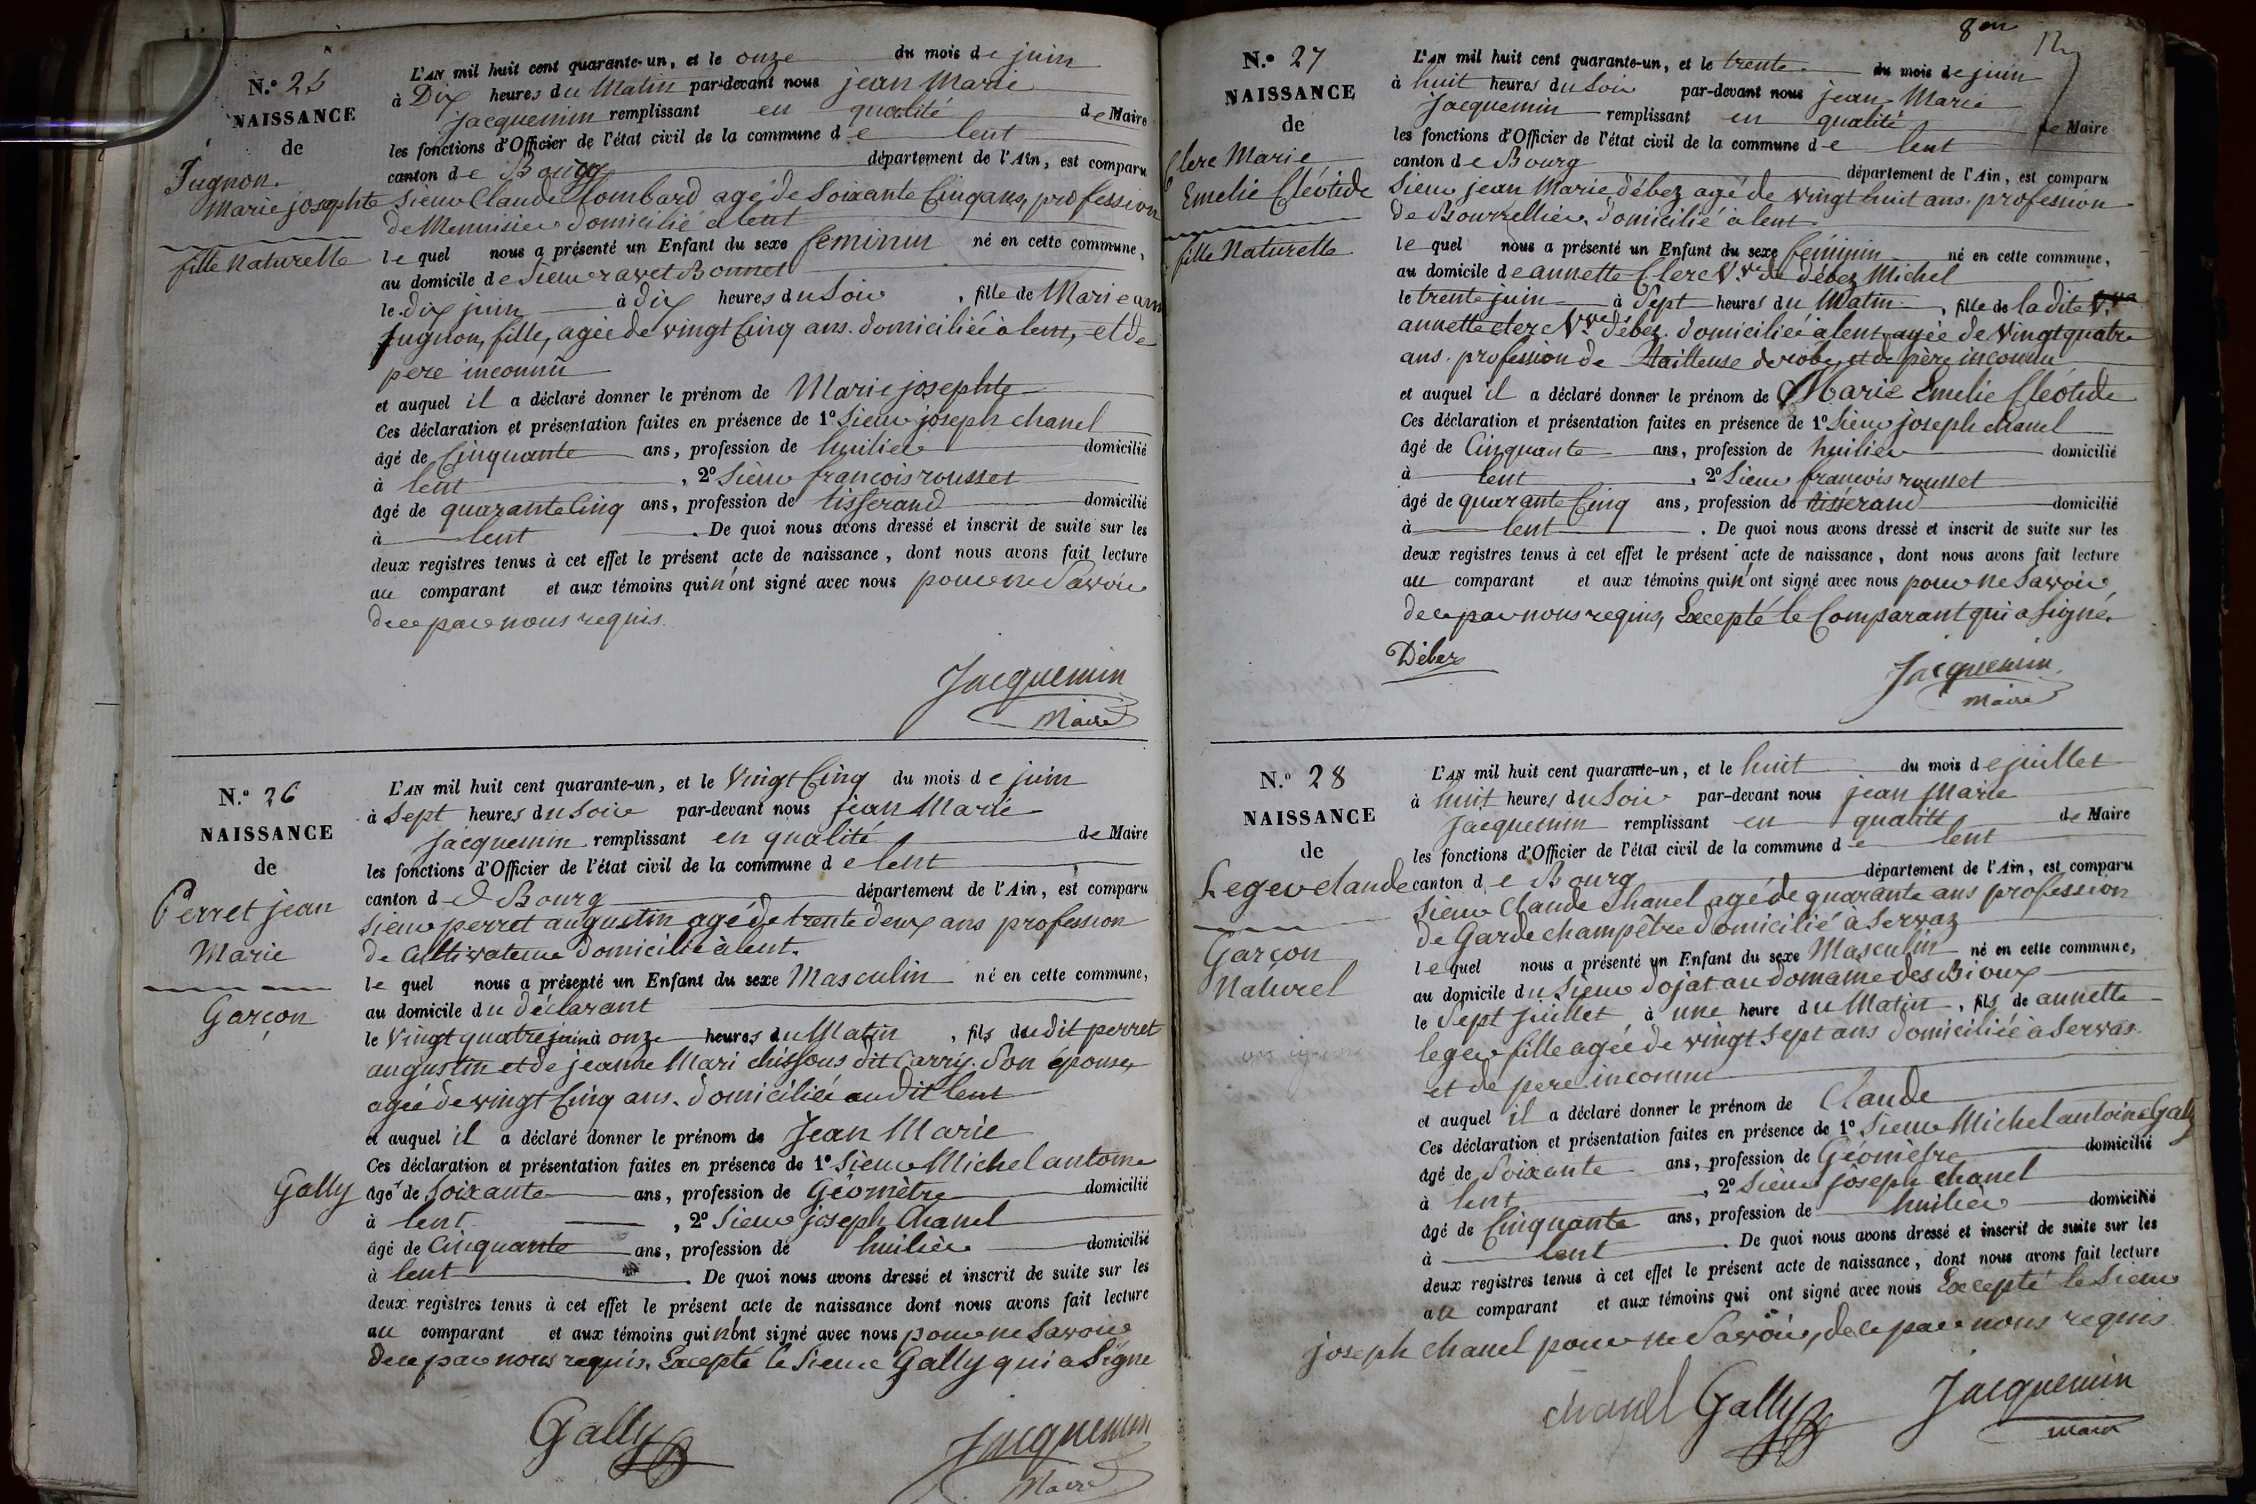 N.° 25
NAISSANCE
de
Jugnon
Marie josephte
fille Naturelle
L'AN mil huit cent quarante-un, et le onze du mois de juin
à Dix heures du Matin par-devant nous jean Marie
Jacquemin remplissant en qualité de Maire
les fonctions d'Officier de l'état civil de la commune de lent
canton de Bourg département de l'Ain, est comparu
Sieur Claude Lombard agé de Soixante Cinq ans, profession
de Menuisier domicilié a lent
le quel nous a présenté un Enfant du sexe feminin né en cette commune,
au domicile de Sieur ravet Bonnet
le dix juin à dix heures du Soir, fille de Marie ann
jugnon, fille, agée de vingt Cinq ans. domiciliée à lent, et de
pere inconnu
et auquel il a déclaré donner le prénom de Marie josephte
Ces déclaration et présentation faites en présence de 1° Sieur joseph chanel
âgé de Cinquante ans, profession de huilier domicilié
à lent, 2° Sieur francois rousset
âgé de quarante Cinq ans, profession de tisserand domicilié
à lent. De quoi nous avons dressé et inscrit de suite sur les
deux registres tenus à cet effet le présent acte de naissance, dont nous avons fait lecture
au comparant et aux témoins qui n'ont signé avec nous pour ne Savoir
de ce par nous requis.
Jacquemin
Maire
N.° 26
NAISSANCE
de
Perret jean
Marie
Garçon
L'AN mil huit cent quarante-un, et le Vingt Cinq du mois de juin
à Sept heures du Soir par-devant nous jean Marie
Jacquemin remplissant en qualité de Maire
les fonctions d'Officier de l'état civil de la commune de lent
canton de Bourg département de l'Ain, est comparu
Sieur perret augustin agé de trente deux ans profession
de Cultivateur domicilié à lent.
le quel nous a présenté un Enfant du sexe Masculin né en cette commune,
au domicile du déclarant
le Vingt quatre juin à onze heures du Matin, fils du dit perret
augustin et de jeanne Mari chissous dit Carry. Son épouse,
agée de vingt Cinq ans. domiciliée au dit lent
et auquel il a déclaré donner le prénom de Jean Marie
Ces déclaration et présentation faites en présence de 1° Sieur Michel antoine
Gally âgé de Soixante ans, profession de Géomètre domicilié
à lent, 2° Sieur joseph Chanel
âgé de Cinquante ans, profession de huilier domicilié
à lent. De quoi nous avons dressé et inscrit de suite sur les
deux registres tenus à cet effet le présent acte de naissance dont nous avons fait lecture
au comparant et aux témoins qui n'ont signé avec nous pour ne Savoir
de ce par nous requis. Excepté le Sieur Gally qui a Signe
Gally
Jacquemin
Maire
8 en
N.° 27
NAISSANCE
de
Clerc Marie
Emelie Cléotide
fille Naturelle
L'AN mil huit cent quarante-un, et le trente du mois de juin
à huit heures du Soir par-devant nous jean Marie
Jacquemin remplissant en qualité de Maire
les fonctions d'Officier de l'état civil de la commune de lent
canton de Bourg département de l'Ain, est comparu
Sieur jean Marie débez agé de vingt huit ans. profession
de Bourrellier. domicilié à lent
le quel nous a présenté un Enfant du sexe féminin né en cette commune,
au domicile de annette Clerc Vve de débez Michel
le trente juin à Sept heures du Matin, fille de la dite Vve
annette clerc Vve débez. domiciliée à lent agée de Vingt quatre
ans. profession de tailleuse de robe et de père inconnu
et auquel il a déclaré donner le prénom de Marie Emelie Cléotide
Ces déclaration et présentation faites en présence de 1° Sieur joseph chanel
âgé de Cinquante ans, profession de huilier domicilié
à lent, 2° Sieur francois rousset
âgé de quarante Cinq ans, profession de tisserand domicilié
à lent. De quoi nous avons dressé et inscrit de suite sur les
deux registres tenus à cet effet le présent acte de naissance, dont nous avons fait lecture
au comparant et aux témoins qui n'ont signé avec nous pour ne Savoir
de ce par nous requis, Excepté le Comparant qui a Signé.
Débez
Jacquemin
Maire
N.° 28
NAISSANCE
de
Leger claude
Garçon
Naturel
L'AN mil huit cent quarante-un, et le huit du mois de juillet
à huit heures du Soir par-devant nous jean Marie
Jacquemin remplissant en qualité de Maire
les fonctions d'Officier de l'état civil de la commune de lent
canton de Bourg département de l'Ain, est comparu
Sieur Claude Chanel agé de quarante ans profession
de Garde champêtre domicilié à Servaz
le quel nous a présenté un Enfant du sexe Masculin né en cette commune,
au domicile du Sieur dojat au domaine des Bioux
le Sept juillet à une heure du Matin, fils de annette
leger fille agée de vingt Sept ans domiciliée à Servas.
et de pere inconnu
et auquel il a déclaré donner le prénom de Claude
Ces déclaration et présentation faites en présence de 1° Sieur Michel antoine Gally
âgé de Soixante ans, profession de Géomètre domicilié
à lent, 2° Sieur joseph chanel
âgé de Cinquante ans, profession de huilier domicilié
à lent. De quoi nous avons dressé et inscrit de suite sur les
deux registres tenus à cet effet le présent acte de naissance, dont nous avons fait lecture
au comparant et aux témoins qui ont signé avec nous Excepté le Sieur
joseph chanel pour ne Savoir, de ce par nous requis.
chanel Gally Jacquemin
Maire